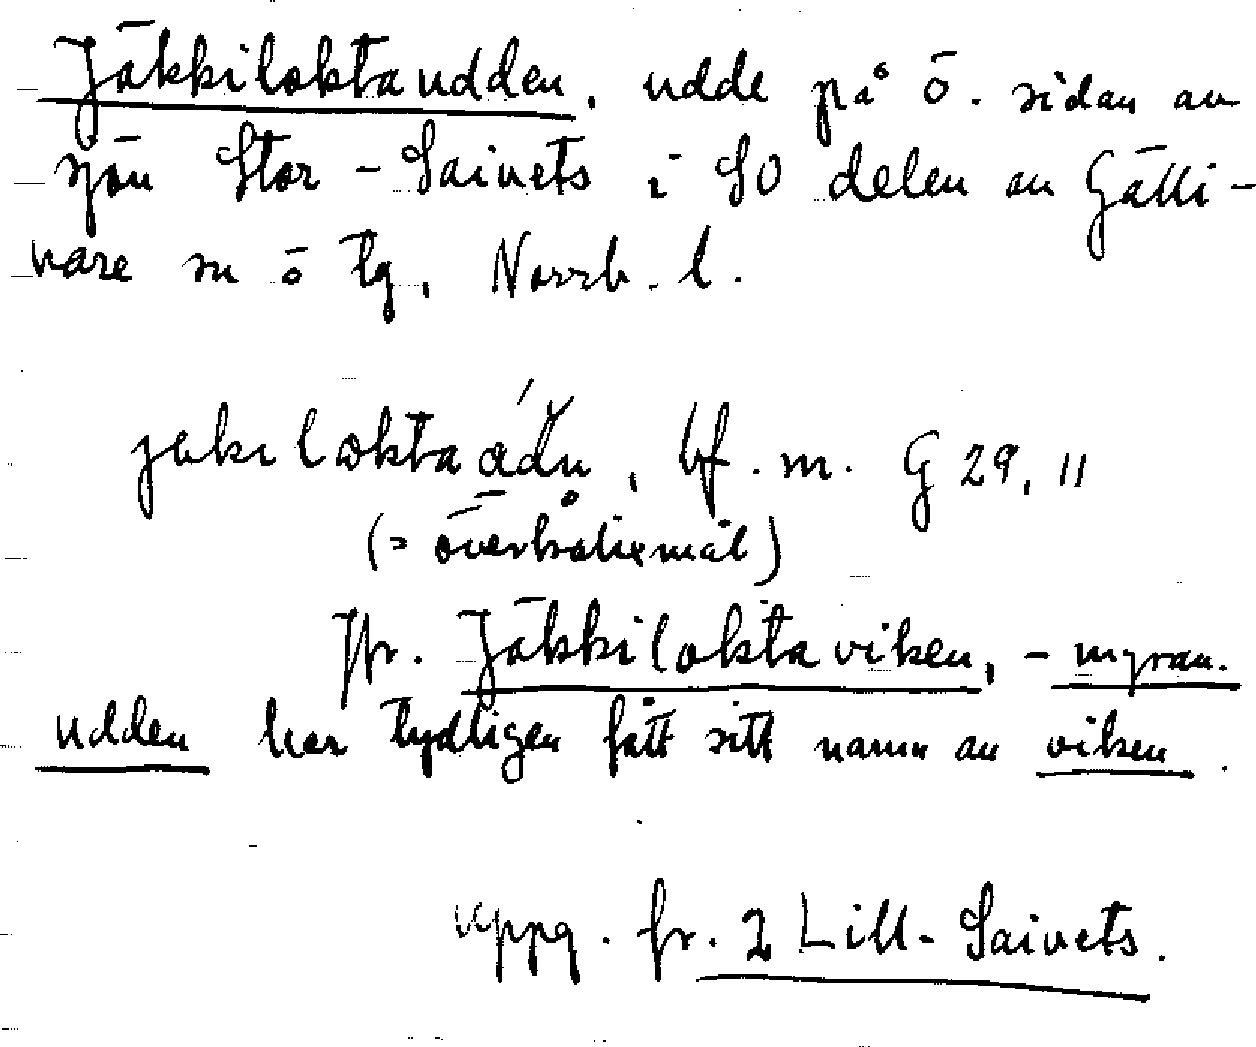 Jäkkiloktaudden, udde på ö. sidan av
sjön Stor-Saivets i SO delen av Gälli-
vare sn o tg, Norrb. l.
bf. m. G 29, 11
(= överkalixmål)
Jfr. Jäkkiloktaviken, - myran.
udden har tydligen fått sitt namn av viken.
uppg. fr. 2 Lill-Saivets.